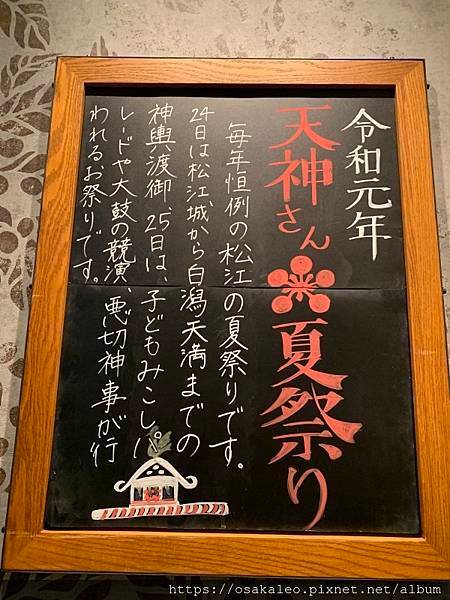 令和元年
天神さん
夏祭り
毎年恒例の松江の夏祭りです。
24日は松江城から白潟天満までの
神輿渡御、25日は、子どもみこしパ
レードや太鼓の競演、悪切神事が行
われるお祭りです。
https://osakaleo.pixnet.net/album